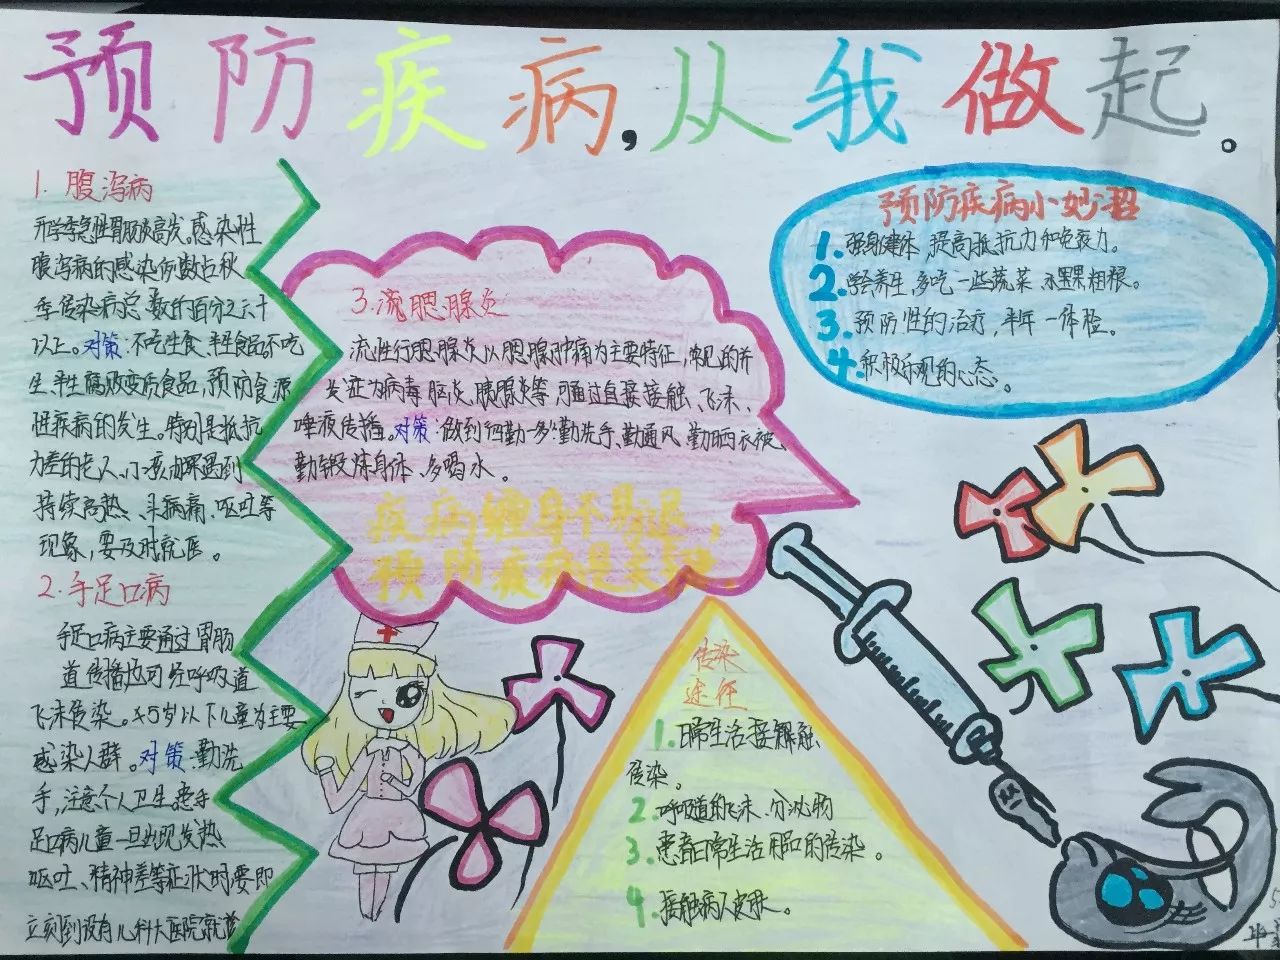 预防疾病,从我做起。
1. 腹泻病
开学季急性胃肠炎高发。感染性
腹泻病的感染份数占秋
季传染病总数的百分之六十
以上。对策:不吃生食、半生食品,不吃
生、半生腐败变质食品,预防食源
性疾病的发生。特别是抵抗
力差的老人、小孩如果遇到
持续高热、头病痛、呕吐等
现象,要及时就医。
2.手足口病
手足口病主要通过胃肠
道传播也可经呼吸道
飞沫传染。5岁以下儿童为主要
感染人群。对策:勤洗
手,注意个人卫生患手
足口病儿童一旦出现发热
呕吐、精神差等症状时要即
立刻到设有儿科大医院就诊
3.流腮腺炎
流性行腮腺炎以腮腺肿痛为主要特征,常见的并
发症为病毒脑炎、胰腺炎等,可通过直接接触、飞沫、
唾液传播。对策:做到"四勤一多"勤洗手、勤通风、勤晒衣被、
勤锻炼身体、多喝水。
疾病缠身不易退,
预防疾病是关键
预防疾病小妙招
1.强身健体,提高抵抗力和免疫力。
2.养生,多吃一些蔬菜、水果粗粮。
3.预防性的治疗,半年一体检。
4.积极乐观的心态。
传染
途径
1.日常生活接触
传染。
2.呼吸道的飞沫、分泌物
3.患者日常生活用口的传染。
4.接触病人皮肤。